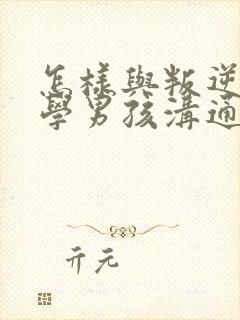 怎樣與叛逆
學男孩溝通
亓元